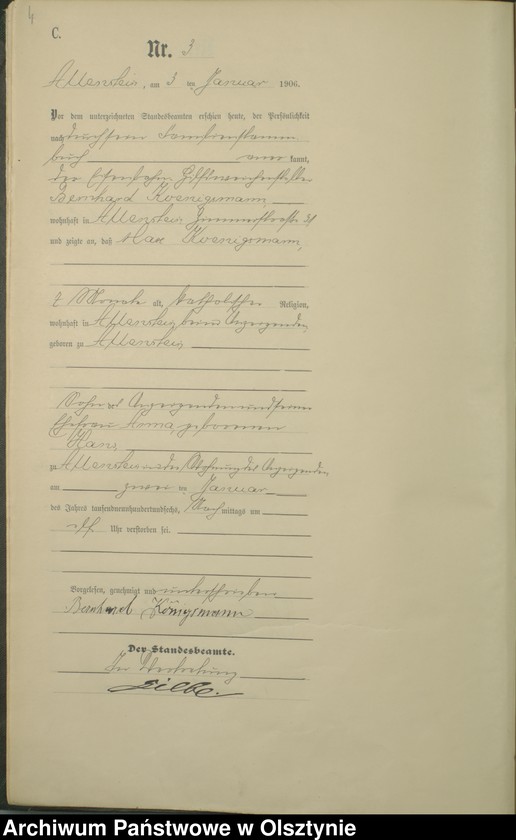 4
C.
Nr. 3
Allenstein, am 3 ten Januar 1906.
Vor dem unterzeichneten Standesbeamten erschien heute, der Persönlichkeit
nach durch sein Familienstamm
buch aner kannt,
der Eisenbahn Hilfsweichensteller
Bernhard Koenigsmann,
wohnhaft in Allenstein
und zeigte an, daß Max Koenigsmann,
2 Monate alt, katholischer Religion,
wohnhaft in Allenstein beim Anzeigenden,
geboren zu Allenstein,
Sohn des Anzeigenden und seiner
Ehefrau Anna, geborenen
zu Allenstein in der Wohnung des Anzeigenden,
am zwei ten Januar
des Jahres tausendneunhundertundsechs, Nach mittags um
elf Uhr verstorben sei.
Vorgelesen, genehmigt und unterschrieben
Bernhard Königsmann
Der Standesbeamte.
In Vertretung
Archiwum Państwowe w Olsztynie